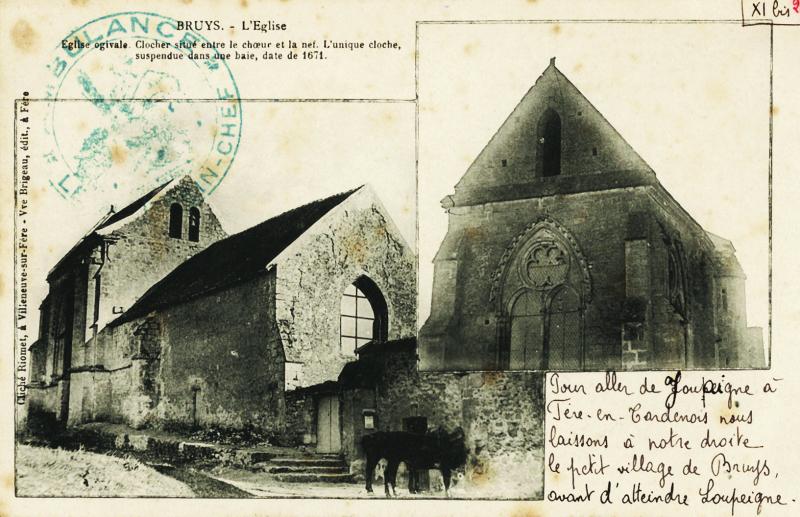 XI bis
BRUYS. - L'Eglise
Eglise ogivale. Clocher situé entre le chœur et la nef. L'unique cloche,
suspendue dans une baie, date de 1671.
AMBULANCE
N-CHEF
Cliché Riomet, à Villeneuve-sur-Fère - Vve Brigeau, édit., à Fère
Pour aller de Joupeigne à
Fère-en-Tardenois nous
laissons à notre droite
le petit village de Bruys,
avant d'atteindre Loupeigne.